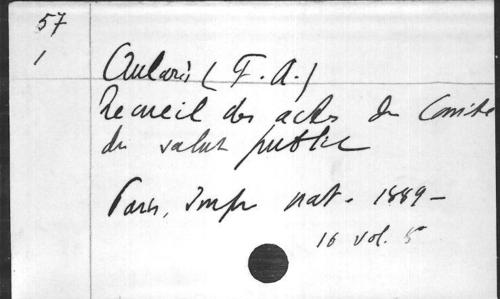 57
1
Aulard (F. A.)
Recueil des actes du Comité
du salut public
Paris, Impr nat. 1889-
16 vol. 5